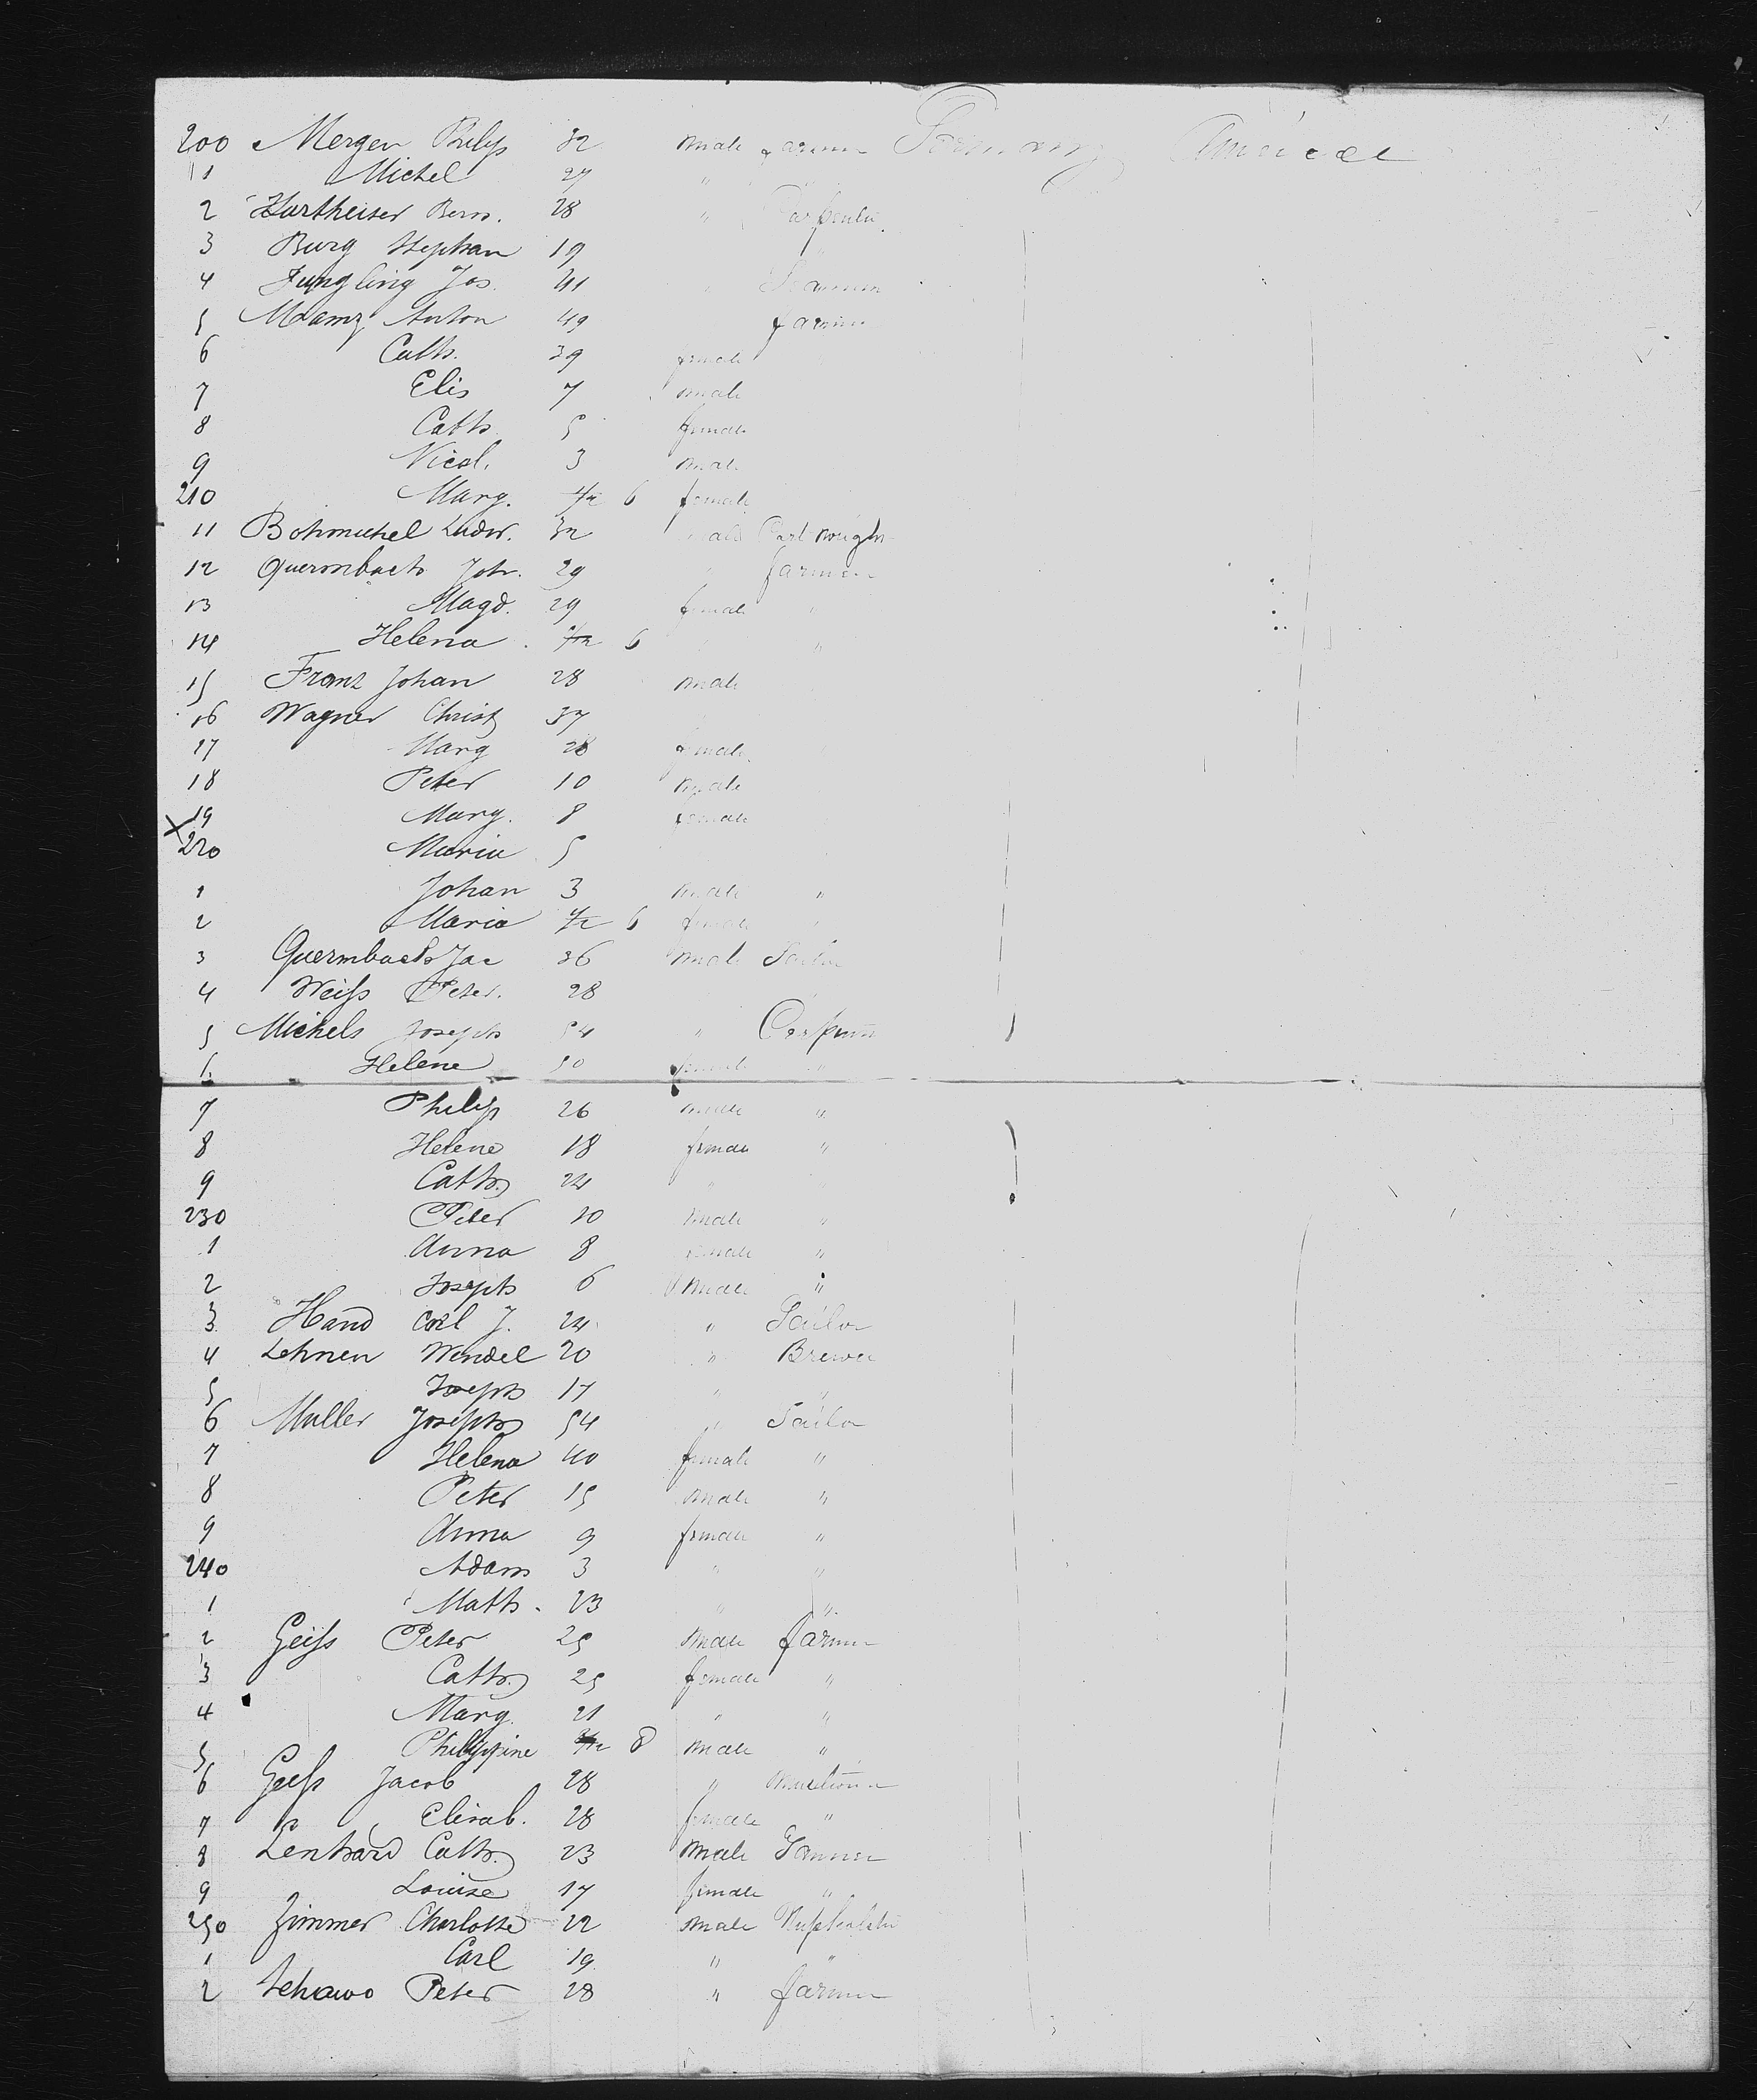 200 Mergen Philip 32 male farmer Germany America
1 Michel 27 "
2 Hartheiser Bern. 28 " Carpenter
3 Burg Stephan 19
4 Jungling Jos. 41 "
5 Manz Anton 49 farmer
6 Cath. 39 female
7 Elis 7 male
8 Cath 5 female
9 Nicol. 3 male
210 Marg. 6 female
11 Bohmichel Ludw. 32 male Cartwright
12 Quermbach Joh. 29 " farmer
13 Magd. 29 female "
14 Helena 6 "
15 Franz Johan 28 male
16 Wagner Christ 37
17 Marg 28 female
18 Peter 10 male
19 Marg. 8 female
220 Maria 5
1 Johan 3 male "
2 Maria 6 female
3 Quermbach Jac 36 male Tailor
4 Weiss Peter. 28
5 Michels Joseph 54 "
6 Helene 50 female "
7 Philip 26 male "
8 Helene 18 female "
9 Cath. 24 "
230 Peter 10 male "
1 Anna 8 female "
2 Joseph 6 male "
3 Hand Carl J. 24 " Tailor
4 Lehnen Wendel 20 " Brewer
5 Joseph 17 "
6 Muller Joseph 54 " Tailor
7 Helena 40 female "
8 Peter 15 male "
9 Anna 9 female "
240 Adam 3 " "
1 Math. 23 " "
2 Geiss Peter 25 male farmer
3 Cath. 25 female "
4 Marg. 21 " "
5 Philippine 8 male "
6 Geiss Jacob 28 "
7 " Elisab. 28 female "
8 Lenhard Cath. 23 male
9 Louise 17 female "
250 Zimmer Charlotte 22 male
1 Carl 19 " "
2 Peter 28 " farmer